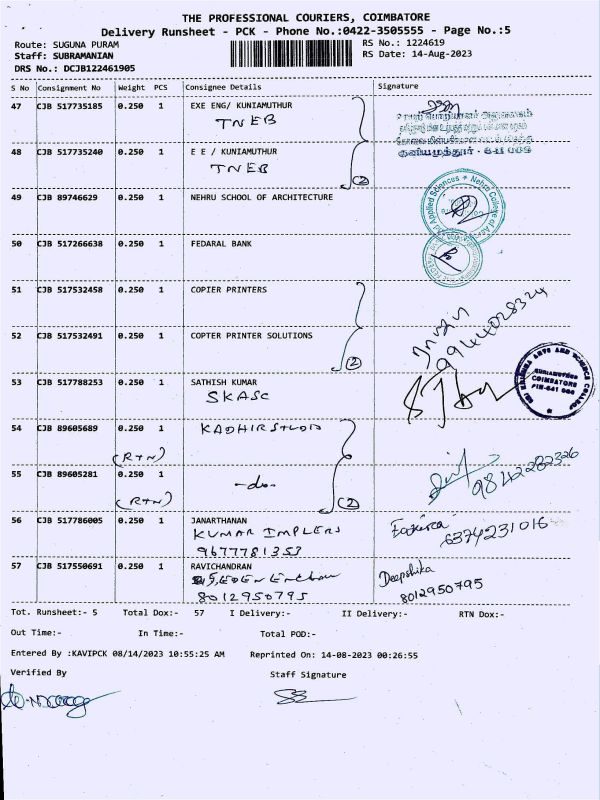 THE PROFESSIONAL COURIERS, COIMBATORE
Delivery Runsheet - PCK - Phone No.:0422-3505555 - Page No.:5
Route: SUGUNA PURAM RS No.: 1224619
Staff: SUBRAMANIAN RS Date: 14-Aug-2023
DRS No.: DCJB122461905
S No Consignment No Weight PCS Consignee Details Signature
47 CJB 517735185 0.250 1 EXE ENG/ KUNIAMUTHUR
TNEB
48 CJB 517735240 0.250 1 E E / KUNIAMUTHUR
TNEB
(2)
குனியமுத்தூர் - 641 008
49 CJB 89746629 0.250 1 NEHRU SCHOOL OF ARCHITECTURE
50 CJB 517266638 0.250 1 FEDARAL BANK
51 CJB 517532458 0.250 1 COPIER PRINTERS
52 CJB 517532491 0.250 1 COPTER PRINTER SOLUTIONS
(2)
9944028324
53 CJB 517788253 0.250 1 SATHISH KUMAR
SKASC
KUNIAMUTHUR
COIMBATORE
PIN-641 008
54 CJB 89605689 0.250 1 KADHIR STUDIO
(RTN)
55 CJB 89605281 0.250 1 -do-
(RTN) (2)
9842282326
56 CJB 517786005 0.250 1 JANARTHANAN
KUMAR IMPLERS
9677781353
6374231016
57 CJB 517550691 0.250 1 RAVICHANDRAN
8012950795
Deepshika
8012950795
Tot. Runsheet:- 5 Total Dox:- 57 I Delivery:- II Delivery:- RTN Dox:-
Out Time:- In Time:- Total POD:-
Entered By :KAVIPCK 08/14/2023 10:55:25 AM Reprinted On: 14-08-2023 00:26:55
Verified By Staff Signature